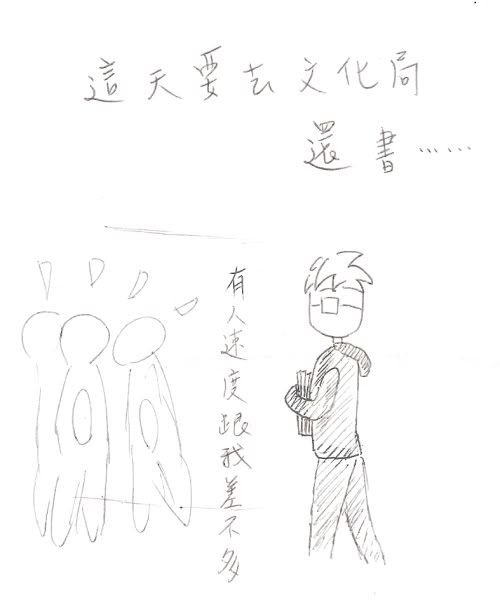 這天要去文化局
還書……
有人速度跟我差不多